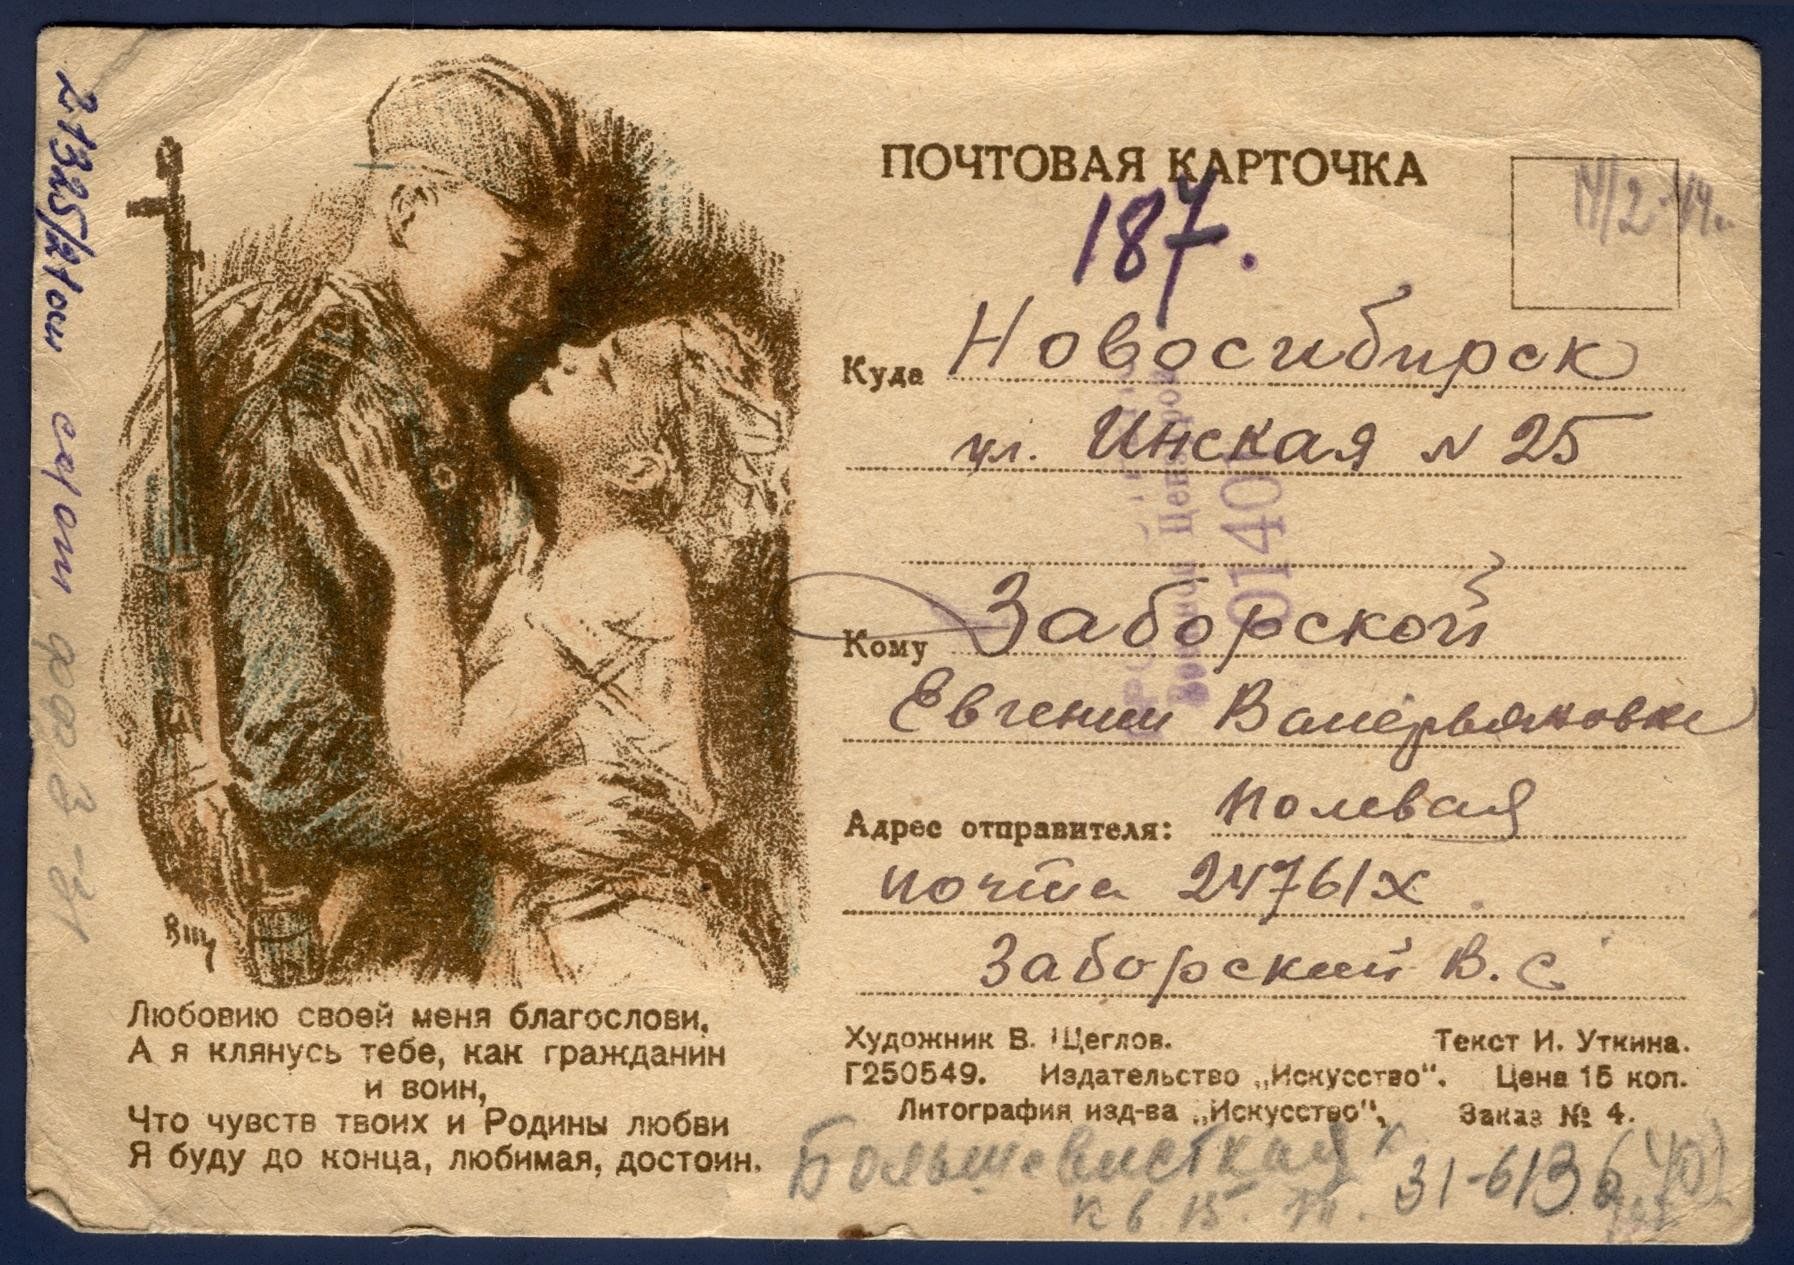 ПОЧТОВАЯ КАРТОЧКА
187.
Куда Новосибирск
ул. Инская № 25
Кому Заборской
Евгении Валерьяновне
Адрес отправителя: Полевая
почта 24761Х
Заборский В. С
Художник В. Щеглов. Текст И. Уткина.
Г250549. Издательство „Искусство“. Цена 15 коп.
Литография изд-ва „Искусство“, Заказ № 4.
Любовию своей меня благослови,
А я клянусь тебе, как гражданин
и воин,
Что чувств твоих и Родины любви
Я буду до конца, любимая, достоин.
Вщ
Военной Цензурой
0140
кв. 15
31-613